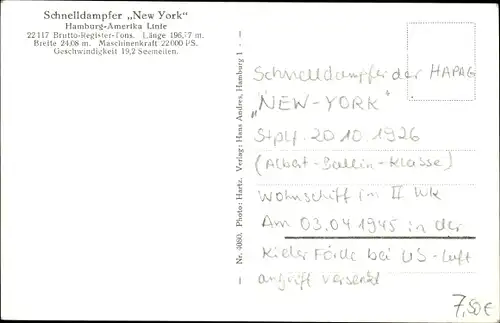 Schnelldampfer „New York“
Hamburg-Amerika Linie
22 117 Brutto-Register-Tons. Länge 196,77 m.
Breite 24,08 m. Maschinenkraft 22 000 PS.
Geschwindigkeit 19,2 Seemeilen.
Nr. 4080. Photo: Hartz. Verlag: Hans Andres, Hamburg 1
Schnelldampfer der HAPAG
„NEW-YORK“
Stplf. 20.10.1926
(Albert-Ballin-Klasse)
Wohnschiff im II WK
Am 03.04.1945 in der
Kieler Förde bei US-Luft
angriff versenkt
7,50€